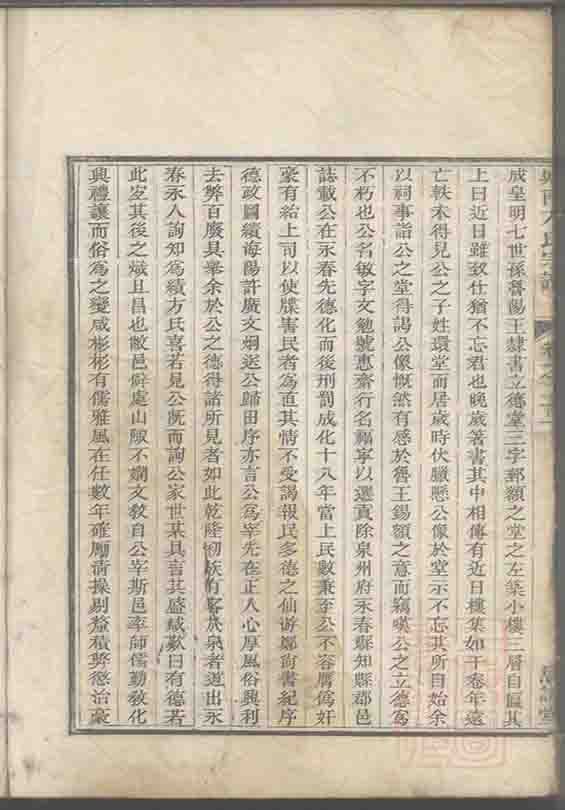 成皇明七世孫藩陽王隸書立德堂三字郵額之堂之左築小樓三層自匾其
上曰近日雖致仕猶不忘君也晚歲著書其中相傳有近日樓集如干卷年遠
亡軼未得見公之子姓環堂而居歲時伏臘懸公像於堂示不忘其所自始余
以祠事詣公之堂得謁公像慨然有感於舊王錫額之意而竊嘆公之立德為
不朽也公名敏字文勉號惠齋行名福寧以選貢除泉州府永春縣知縣郡邑
誌載公在永春先德化而後刑罰成化十八年當上民數秉至公不容膺為奸
豪有紿上司以使牒害民者為直其情不受謁報民多德之仙遊鄭尚書紀序
德政圖續海陽許廣文炯送公歸田序亦言公為宰先在正人心厚風俗興利
去弊百廢具舉余於公之德得諸所見者如此乾隆初族有客於泉者道出永
春永人詢知為績方氏喜若見公既而詢公家世某具言其盛咸歎曰有德若
此宜其後之熾且昌也敝邑僻處山陬不嫻文教自公宰斯邑率師儒勤敎化
興禮讓而俗為之變咸彬彬有儒雅風在任數年確厲清操剔釐積弊懲治豪